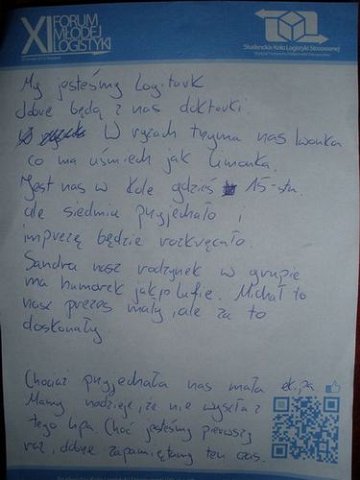 XI FORUM
MŁODEJ
LOGISTYKI
Studenckie Koło Logistyki Stosowanej
My jesteśmy Logitruk
dobre będą z nas doktorki
W ryzach trzyma nas Iwonka
co ma uśmiech jak limonka.
Jest nas w Kole gdzieś 15-stu.
ale siedmiu przyjechało i
imprezę będzie rozkręcało
Sandra nasz rodzynek w grupie
ma humorek jak po lufie. Michał to
nasz prezes mały, ale za to
doskonały
Chociaż przyjechała nas mała ekipa
Mamy nadzieję, że nie wyszła z
tego lipa Choć jesteśmy pierwszy
raz, dobrze zapamiętamy ten czas.